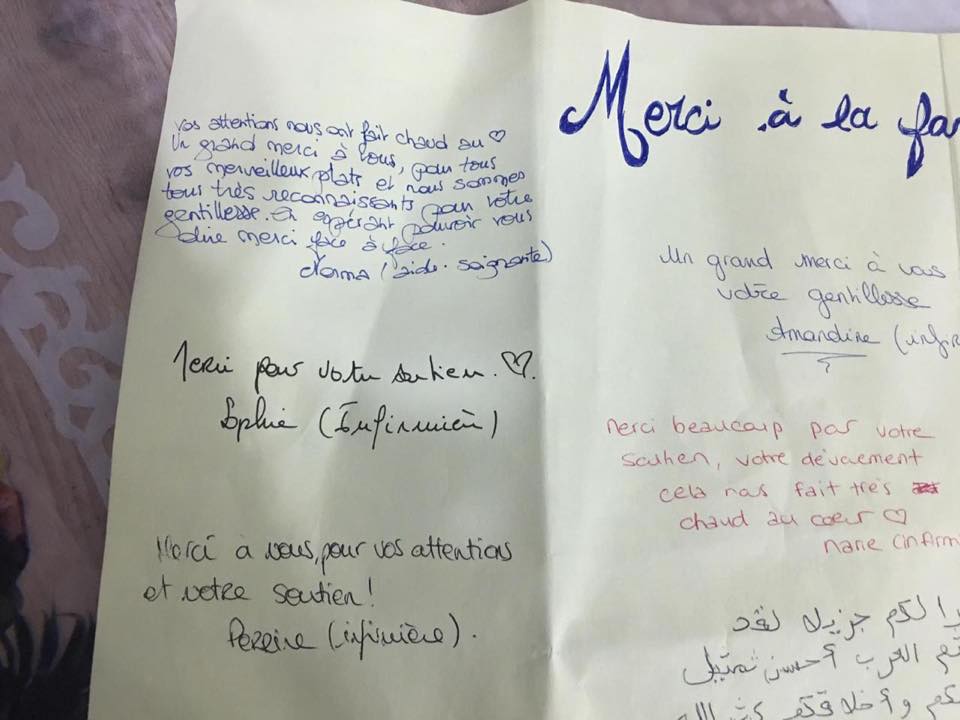 Merci à la fa
vos attentions nous ont fait chaud au ♡
Un grand merci à vous, pour tous
vos merveilleux plats et nous sommes
tous très reconnaissants pour votre
gentillesse. En espérant pouvoir vous
dire merci face à face.
Norma (l'aide-soignante)
Merci pour votre soutien. ♡.
Sophie (Infirmière)
Merci à vous, pour vos attentions
et votre soutien!
Perrine (infirmière).
Un grand merci à vous
votre gentillesse
Amandine (infir
Merci beaucoup pour votre
soutien, votre dévouement
cela nous fait très
chaud au coeur ♡
Marie (infirm
لكم جزيلا لقد
العرب أحسن تمثيل
وأخلاقكم